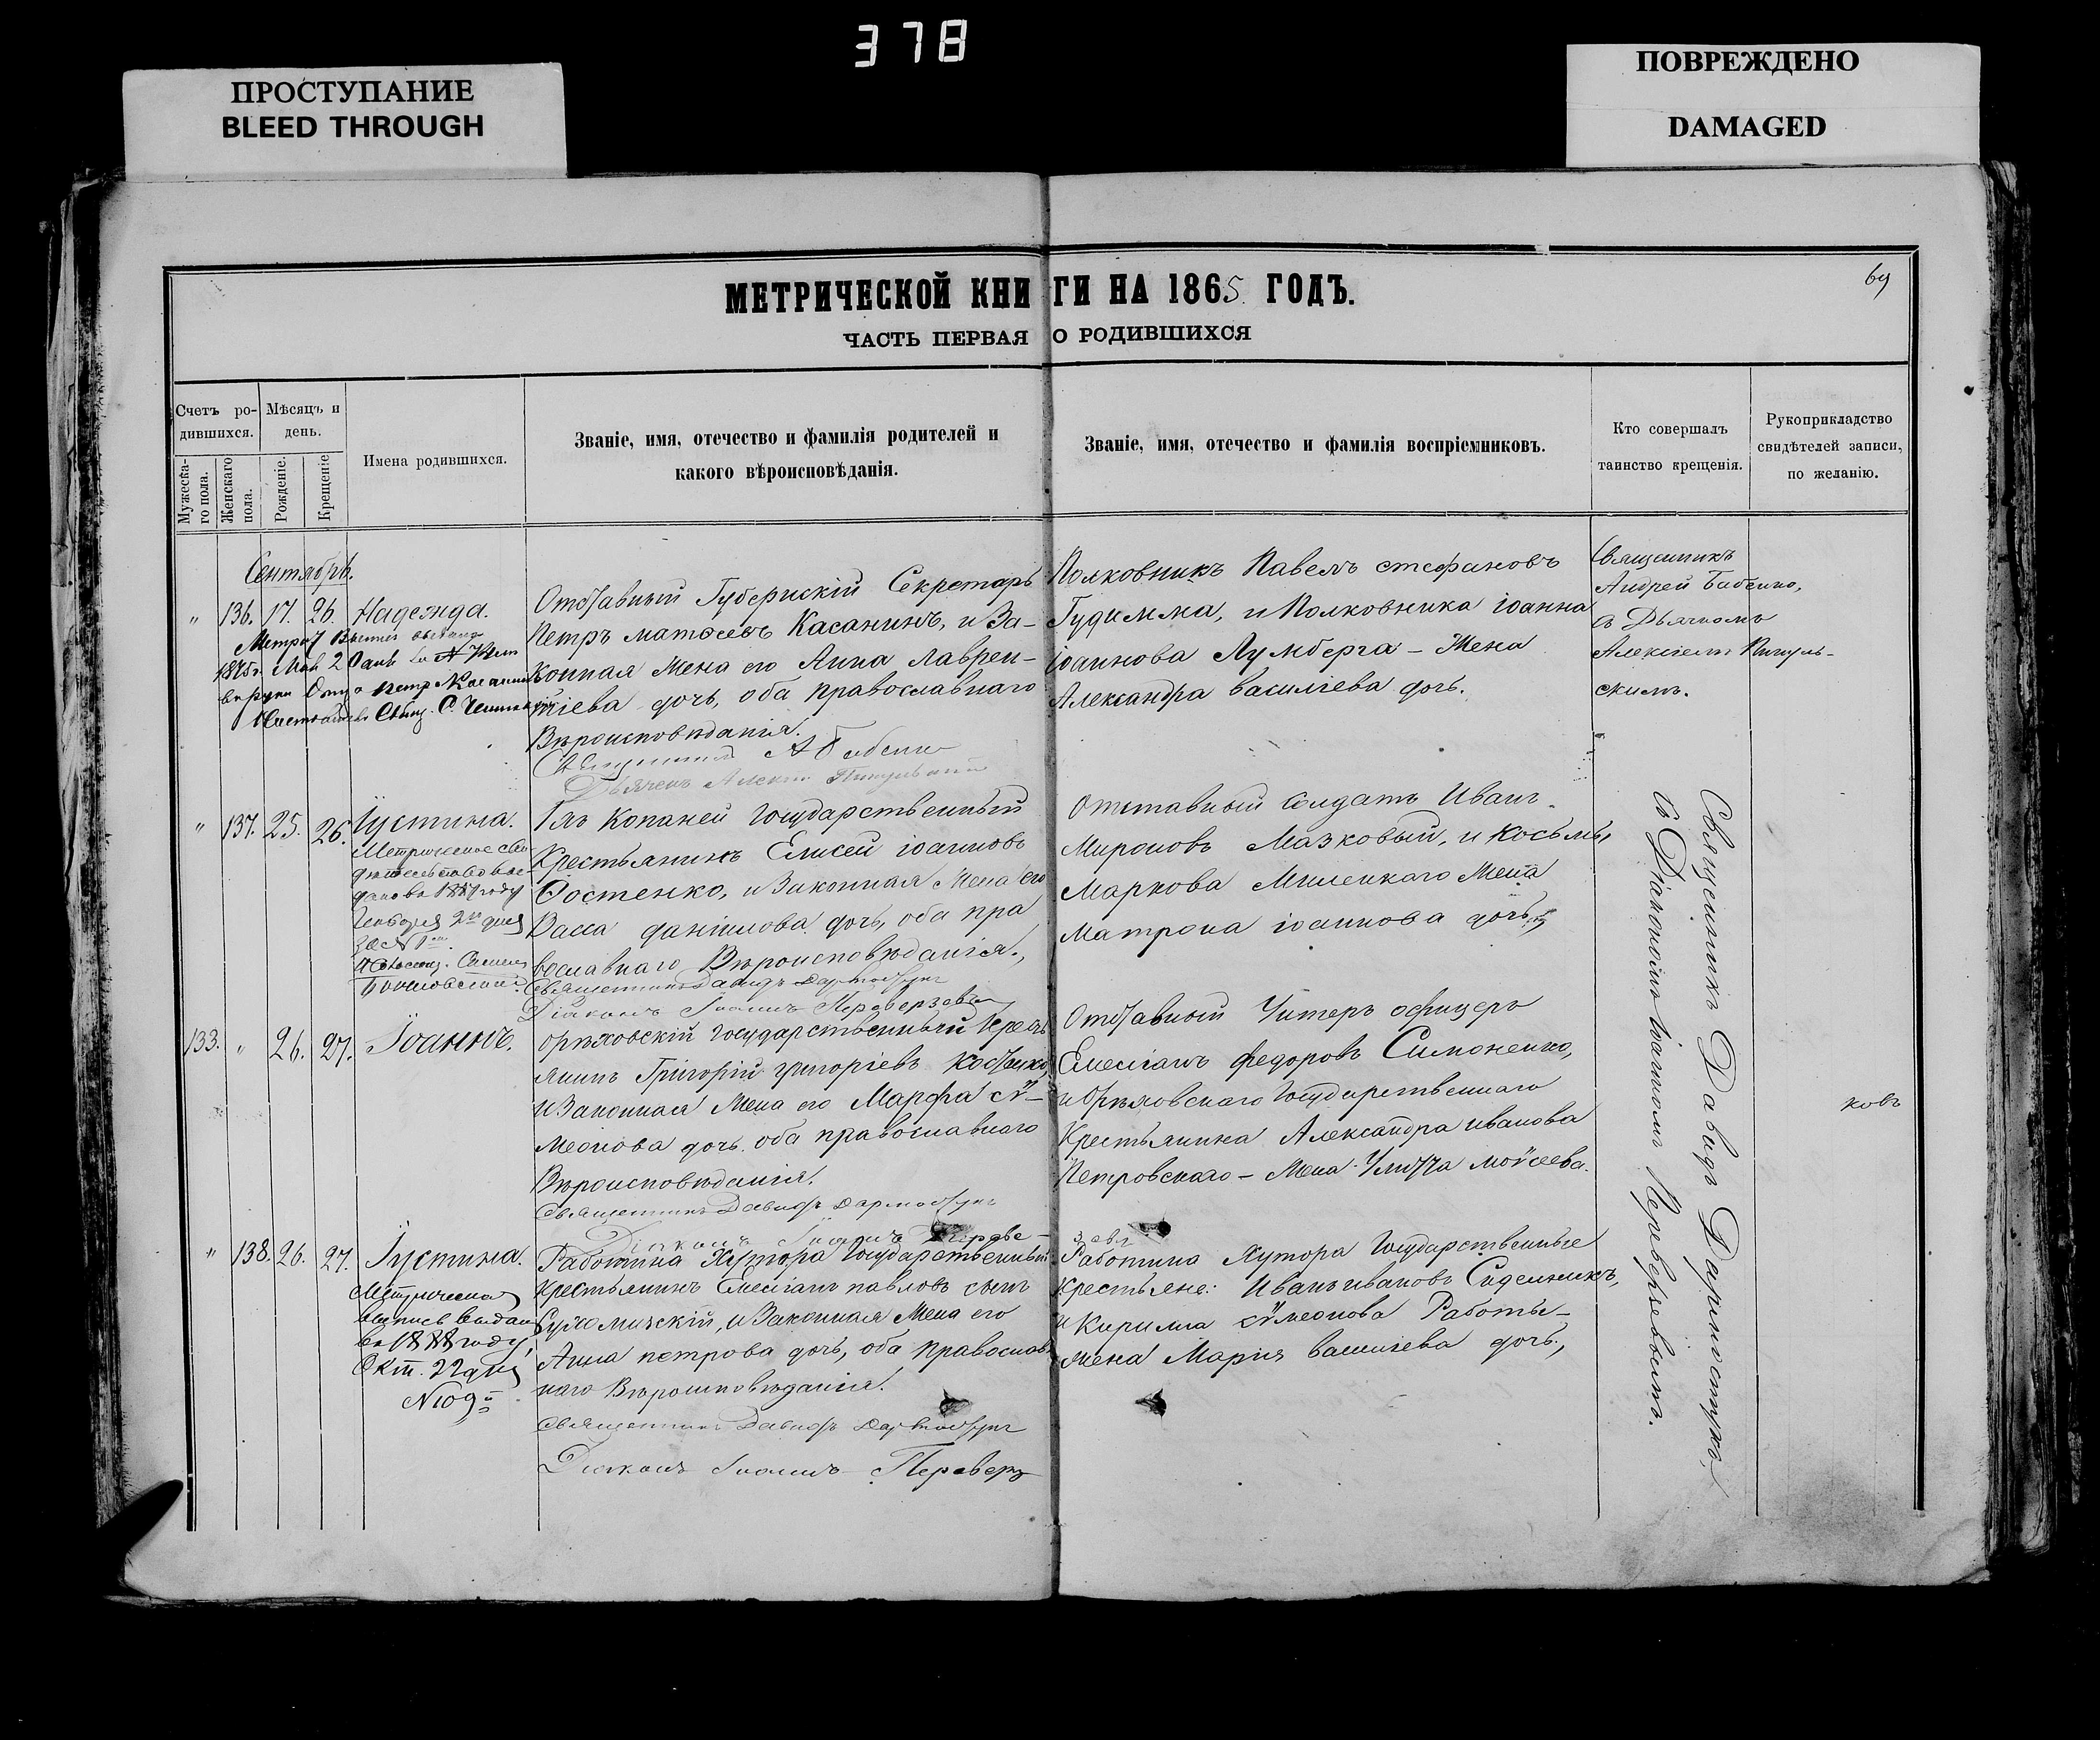 378
ПРОСТУПАНИЕ
BLEED THROUGH
ПОВРЕЖДЕНО
DAMAGED
69
МЕТРИЧЕСКОЙ КНИГИ НА 1865 ГОДЪ.
ЧАСТЬ ПЕРВАЯ О РОДИВШИХСЯ
Счетъ ро-
дившихся.
Мужеска-
го пола.
Женскаго
пола.
Мѣсяцъ и
день.
Рожденіе.
Крещеніе
Имена родившихся.
Званіе, имя, отечество и фамилія родителей и
какого вѣроисповѣданія.
Званіе, имя, отечество и фамилія воспріемниковъ.
Кто совершалъ
таинство крещенія.
Рукоприкладство
свидѣтелей записи,
по желанію.
Сентябрь.
" 136. 17. 26. Надежда.
1875г. Мая 2
въ руки Отцу Петр. Касанин
Отставный Губернскій Секретарь
Петръ матөеевъ Касанинъ, и За-
конная Жена его Анна Лаврен-
тіева дочь, оба православнаго
Вѣроисповѣданія.
Священникъ А Бабенко
Дьячекъ Алексѣй Пигульскій
Полковникъ Павелъ стефановъ
Гудимма, и Полковника іоанна
іоаннова Лумберга - Жена
Александра василіева дочь.
Священникъ
Андрей Бабенко,
съ Дьячкомъ
Алексіемъ Пигуль-
скимъ.
" 137. 25. 26. Іустина.
Метрическое сви
дѣтельство вы
дано въ году
Генваря 2го дня
за № 1
Копаней Государственный
Крестьянинъ Елисей іоанновъ
Костенко, и Законная Жена его
Васса даніилова дочь, оба пра
вославнаго Вѣроисповѣданія.,
Священникъ Давидъ Дармостукъ
Діаконъ Іоаннъ Переверзевъ
Отставный Солдатъ Иванъ
Мироновъ Мазковый, и Косьмы
Маркова Милецкаго Жена
Матрона іоаннова дочь.,
133. " 26. 27. Іоаннъ.
Орѣховскій Государственный Кресть
янинъ Григорій григоріевъ Костенко,
и Законная Жена его Марфа сѵ-
меонова дочь. оба православнаго
Вѣроисповѣданія.
Священникъ Давидъ Дармостукъ
Діаконъ Іоаннъ Переве-
зевъ
Отставный Унтеръ офицеръ
Емеліанъ федоровъ Симоненко,
и Орѣховскаго Государственнаго
Крестьянина Александра иванова
Петровскаго - Жена Улита моѵсеева.
ковъ
" 138. 26. 27. Іустина.
Метрическая
выпись выдана
въ 1888 году,
Окт. 22 дня
№ 109й
Работина Хутора Государственный
Крестьянинъ Емеліанъ павловъ сынъ
Сухомизскій, и Законная Жена его
Анна петрова дочь, оба Православ
наго Вѣроисповѣданія.
Священникъ Давидъ Дармостукъ
Діаконъ Іоаннъ Переверз
Работина Хутора Государственные
Крестьяне: Иванъ ивановъ Сиденникъ,
и Кирилла сѵмеонова Работы-
Жена Марія василіева дочь.,
Священникъ Давидъ Дармостукъ
съ Діакономъ Іоанномъ Переверзевымъ.